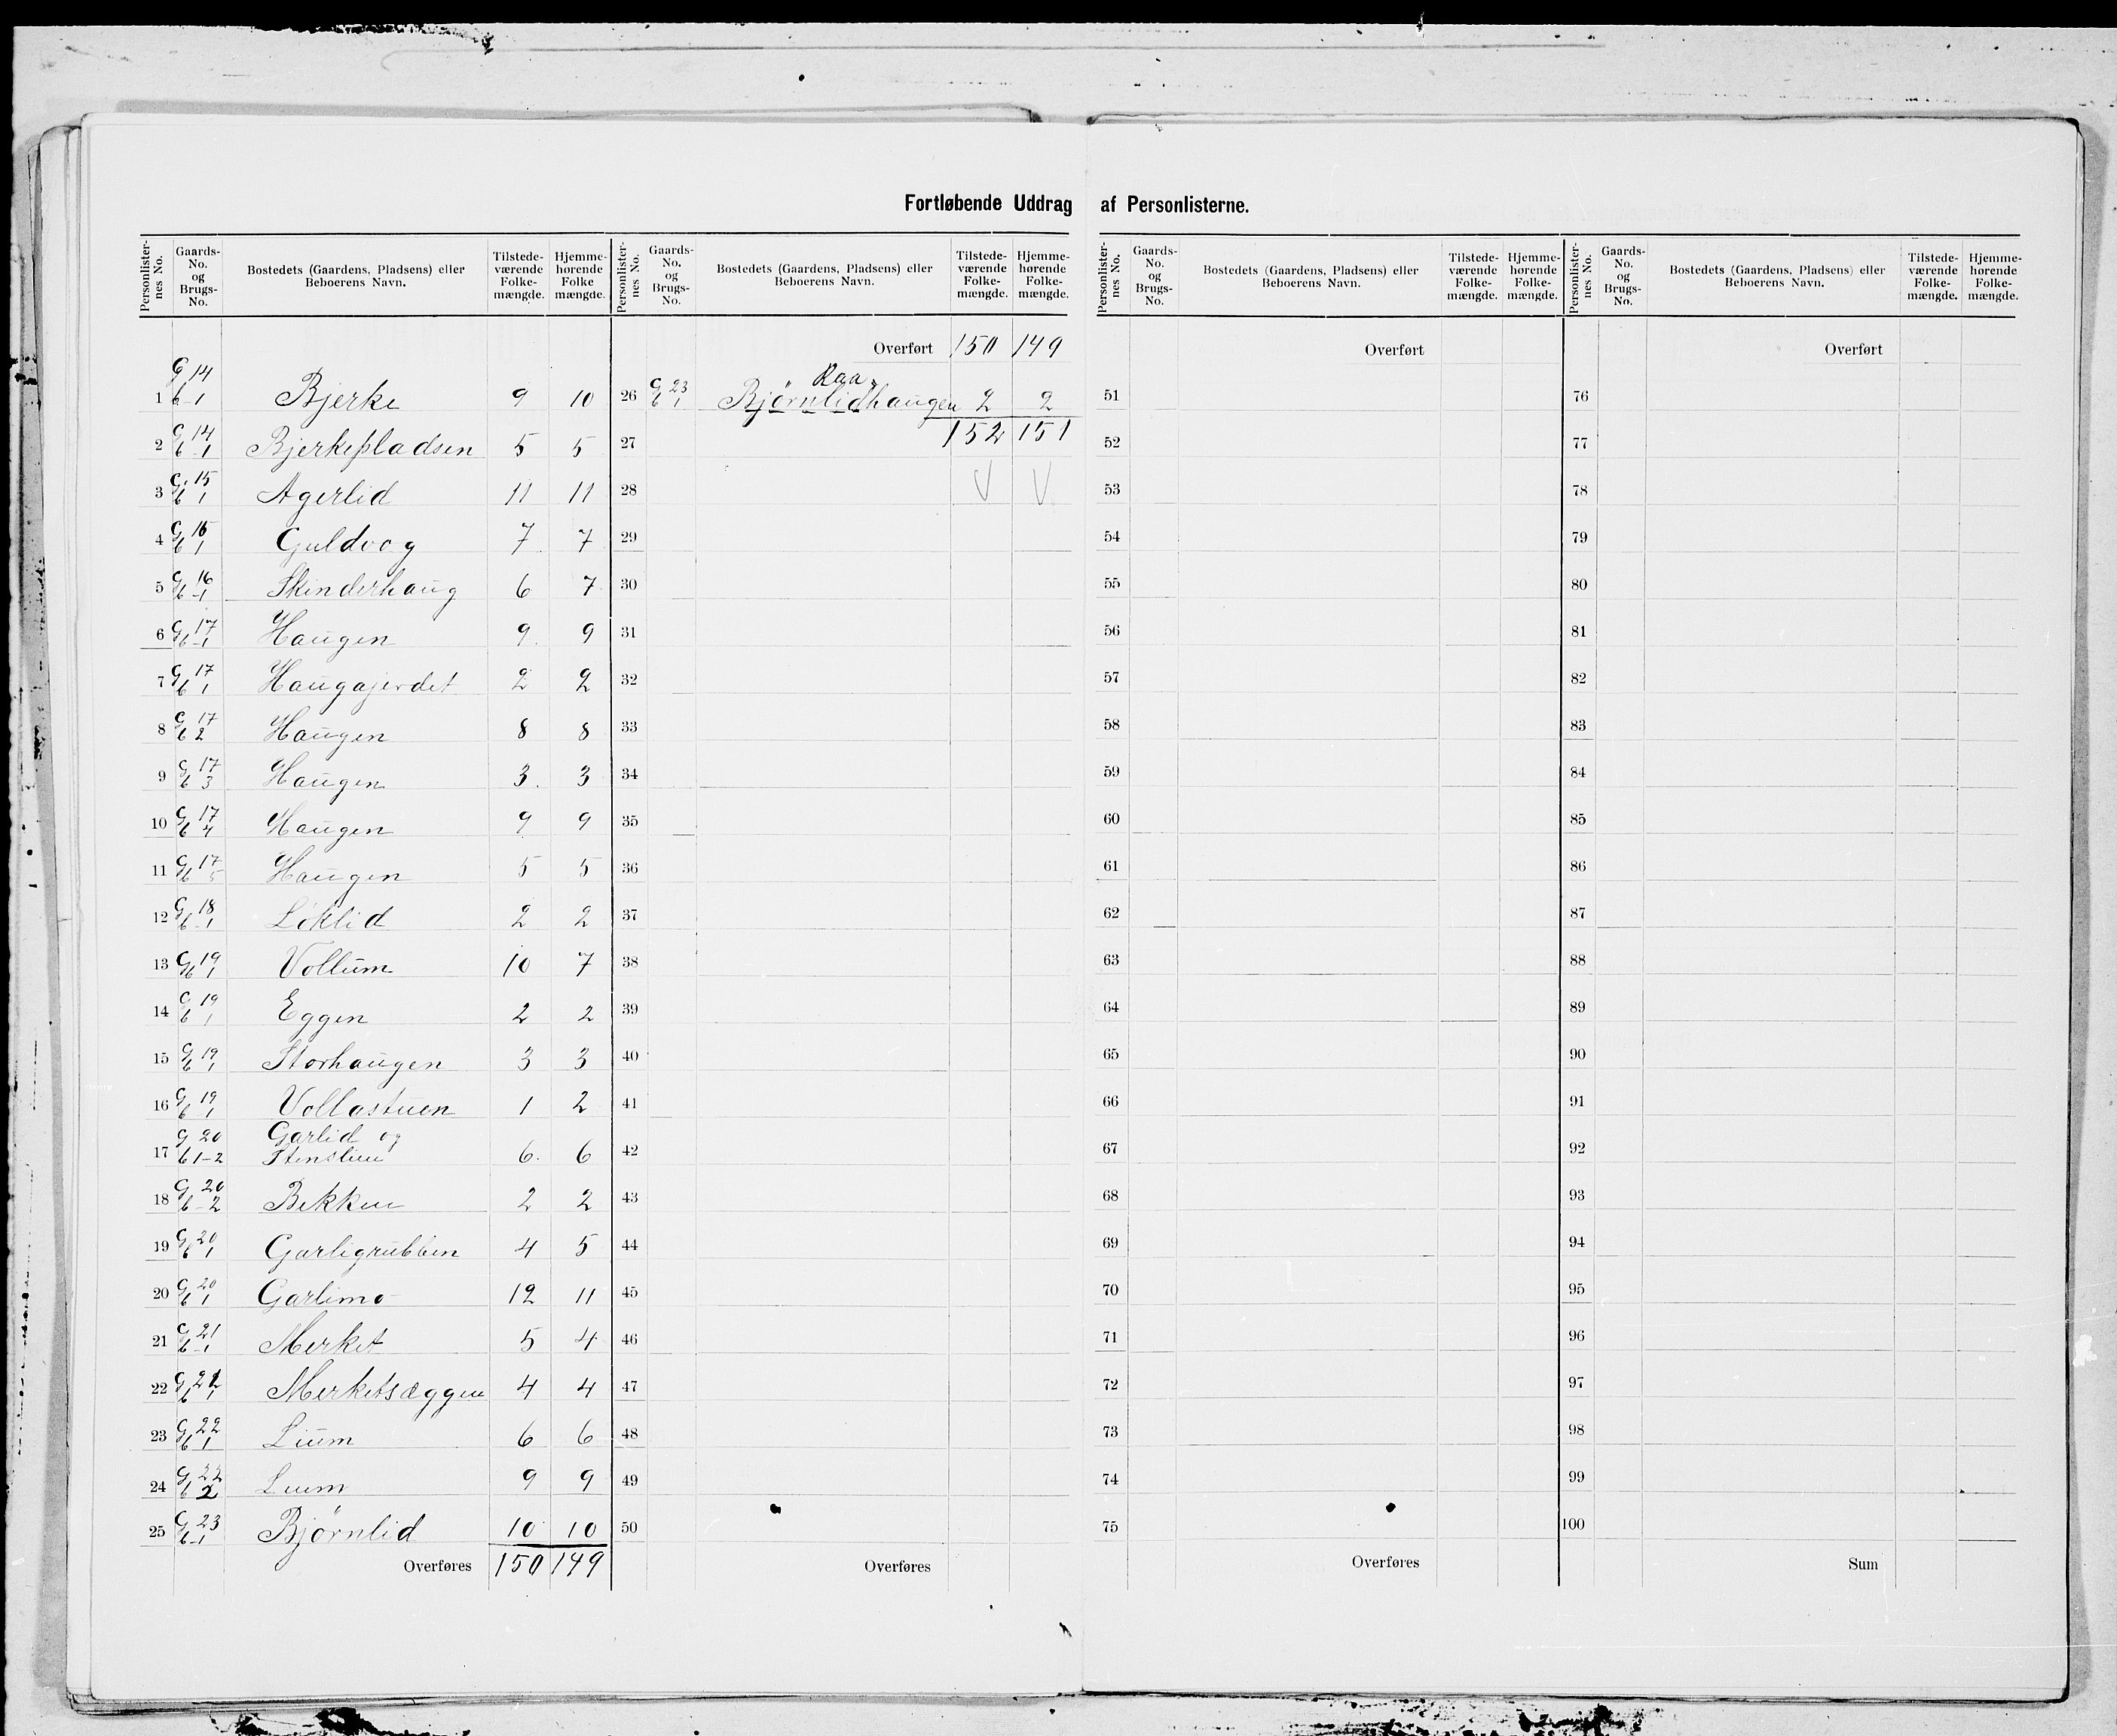 Fortløbende Uddrag af Personlisterne.
Personlister-nes No. Gaards-No. og Brugs-No. Bostedets (Gaardens, Pladsens) eller Beboerens Navn. Tilstede-værende Folke-mængde. Hjemme-hørende Folke mængde.
G 14
1 b 1 Bjerke 9 10
G 14
2 b 1 Bjerkepladsen 5 5
G 15
3 b 1 Agerlid 11 11
G 16
4 b 1 Guldvog 7 7
G 16
5 b 1 Skinderhaug 6 7
G 17
6 b 1 Haugen 9 9
G 17
7 b 1 Haugajerdet 2 2
G 17
8 b 2 Haugen 8 8
G 17
9 b 3 Haugen 3 3
G 17
10 b 4 Haugen 9 9
G 17
11 b 5 Haugen 5 5
G 18
12 b 1 Løklid 2 2
G 19
13 b 1 Vollum 10 7
G 19
14 b 1 Eggen 2 2
G 19
15 b 1 Storhaugen 3 3
G 19
16 b 1 Vollastuen 1 2
G 20 Garlid og
17 b 1-2 Stenslien 6 6
G 20
18 b 2 Bekken 2 2
G 20
19 b 1 Garligrubben 4 5
G 20
20 b 1 Garlimo 12 11
G 21
21 b 1 Merket 5 4
G 21
22 b 1 Merketsæggen 4 4
G 22
23 b 1 Lium 6 6
G 22
24 b 2 Lium 9 9
G 23
25 b 1 Bjørnlid 10 10
Overføres 150 149
Personlister-nes No. Gaards-No. og Brugs-No. Bostedets (Gaardens, Pladsens) eller Beboerens Navn. Tilstede-værende Folke-mængde. Hjemme-hørende Folke-mængde.
Overført 150 149
G 23 Raa
26 b 1 Bjørnlidhaugen 2 2
27 152 151
28 V V
29
30
31
32
33
34
35
36
37
38
39
40
41
42
43
44
45
46
47
48
49
50
Overføres
Personlister-nes No. Gaards-No. og Brugs-No. Bostedets (Gaardens, Pladsens) eller Beboerens Navn. Tilstede-værende Folke-mængde. Hjemme-hørende Folke-mængde.
Overført
51
52
53
54
55
56
57
58
59
60
61
62
63
64
65
66
67
68
69
70
71
72
73
74
75
Overføres
Personlister-nes No. Gaards-No. og Brugs-No. Bostedets (Gaardens, Pladsens) eller Beboerens Navn. Tilstede-værende Folke-mængde. Hjemme-hørende Folke-mængde.
Overført
76
77
78
79
80
81
82
83
84
85
86
87
88
89
90
91
92
93
94
95
96
97
98
99
100
Sum